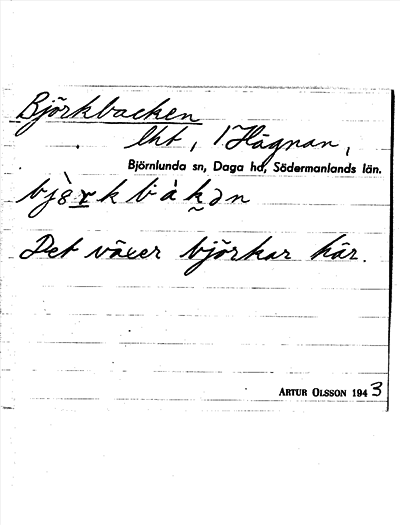 Björkbacken
lht, 1 Hägnan,
Björnlunda sn, Daga hd, Södermanlands län.
Det växer björkar här.
ARTUR OLSSON 1943